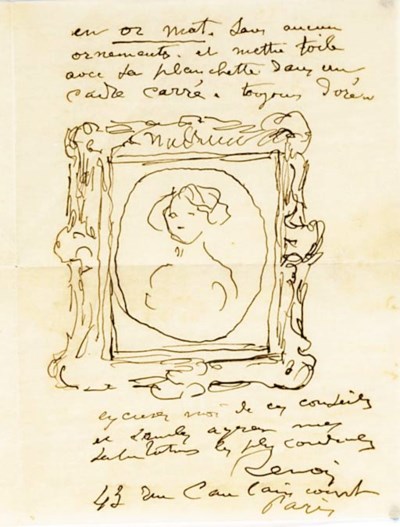 en or mat. sans aucun
ornements. et mettre toile
avec sa planchette dans un
cadre carré. toujours doré
excusez moi de ces conseils
et
salutations les plus cordiales
Renoir
43 rue Caulaincourt
Paris